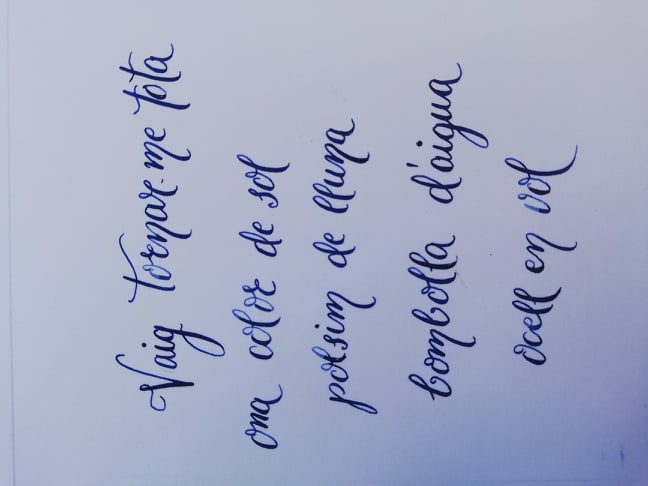 Vaig tornar-me tota
ona color de sol
polsim de lluna
bombolla d'aigua
ocell en vol